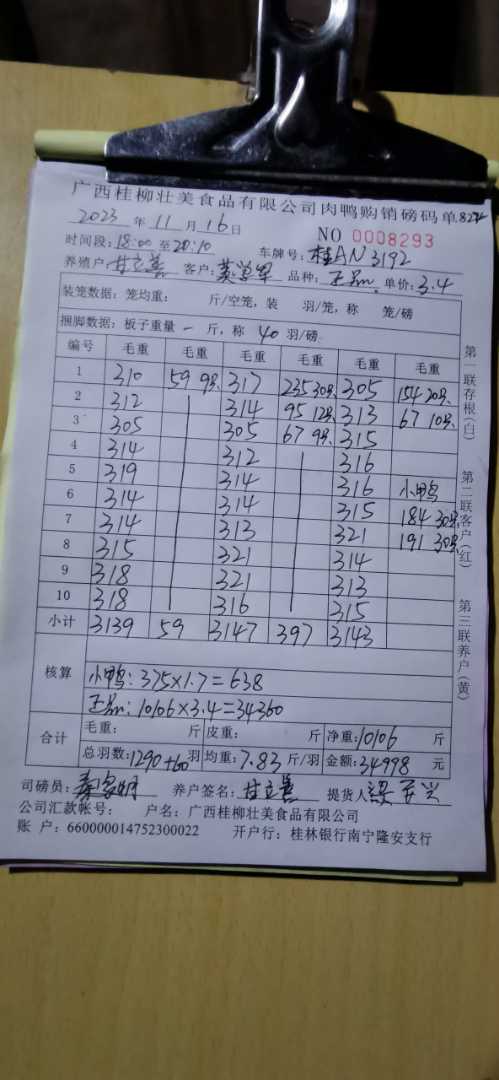 广西桂柳壮美食品有限公司肉鸭购销磅码单
2023 年 11 月 16 日 NO 0008293
时间段:18:00 至 20:10 车牌号:桂AN3192
养殖户 甘立善 客户: 品种: 正品 单价:3.4
装笼数据:笼均重: 斤/空笼,装 羽/笼,称 笼/磅
捆脚数据:板子重量 一 斤,称 40 羽/磅
编号 毛重 毛重 毛重 毛重 毛重 毛重
1 310 59 9只 317 235 30只 305 154 20只
2 312 314 95 12只 313 67 10只
3 305 305 67 9只 315
4 314 312 316
5 319 314 316 小鸭
6 314 314 315 184 30只
7 314 313 321 191 30只
8 315 321 314
9 318 321 313
10 318 316 315
小计 3139 59 3147 397 3143
核算
小鸭:375×1.7=638
正品:10106×3.4=34360
合计 毛重: 斤 皮重: 斤 净重:10106 斤
总羽数:1290+60 羽 均重:7.83 斤/羽 金额:34998 元
司磅员: 养户签名:甘立善 提货人
公司汇款帐号: 户名:广西桂柳壮美食品有限公司
账 户:660000014752300022 开户行:桂林银行南宁隆安支行
第一联存根(白)
第二联客户(红)
第三联养户(黄)